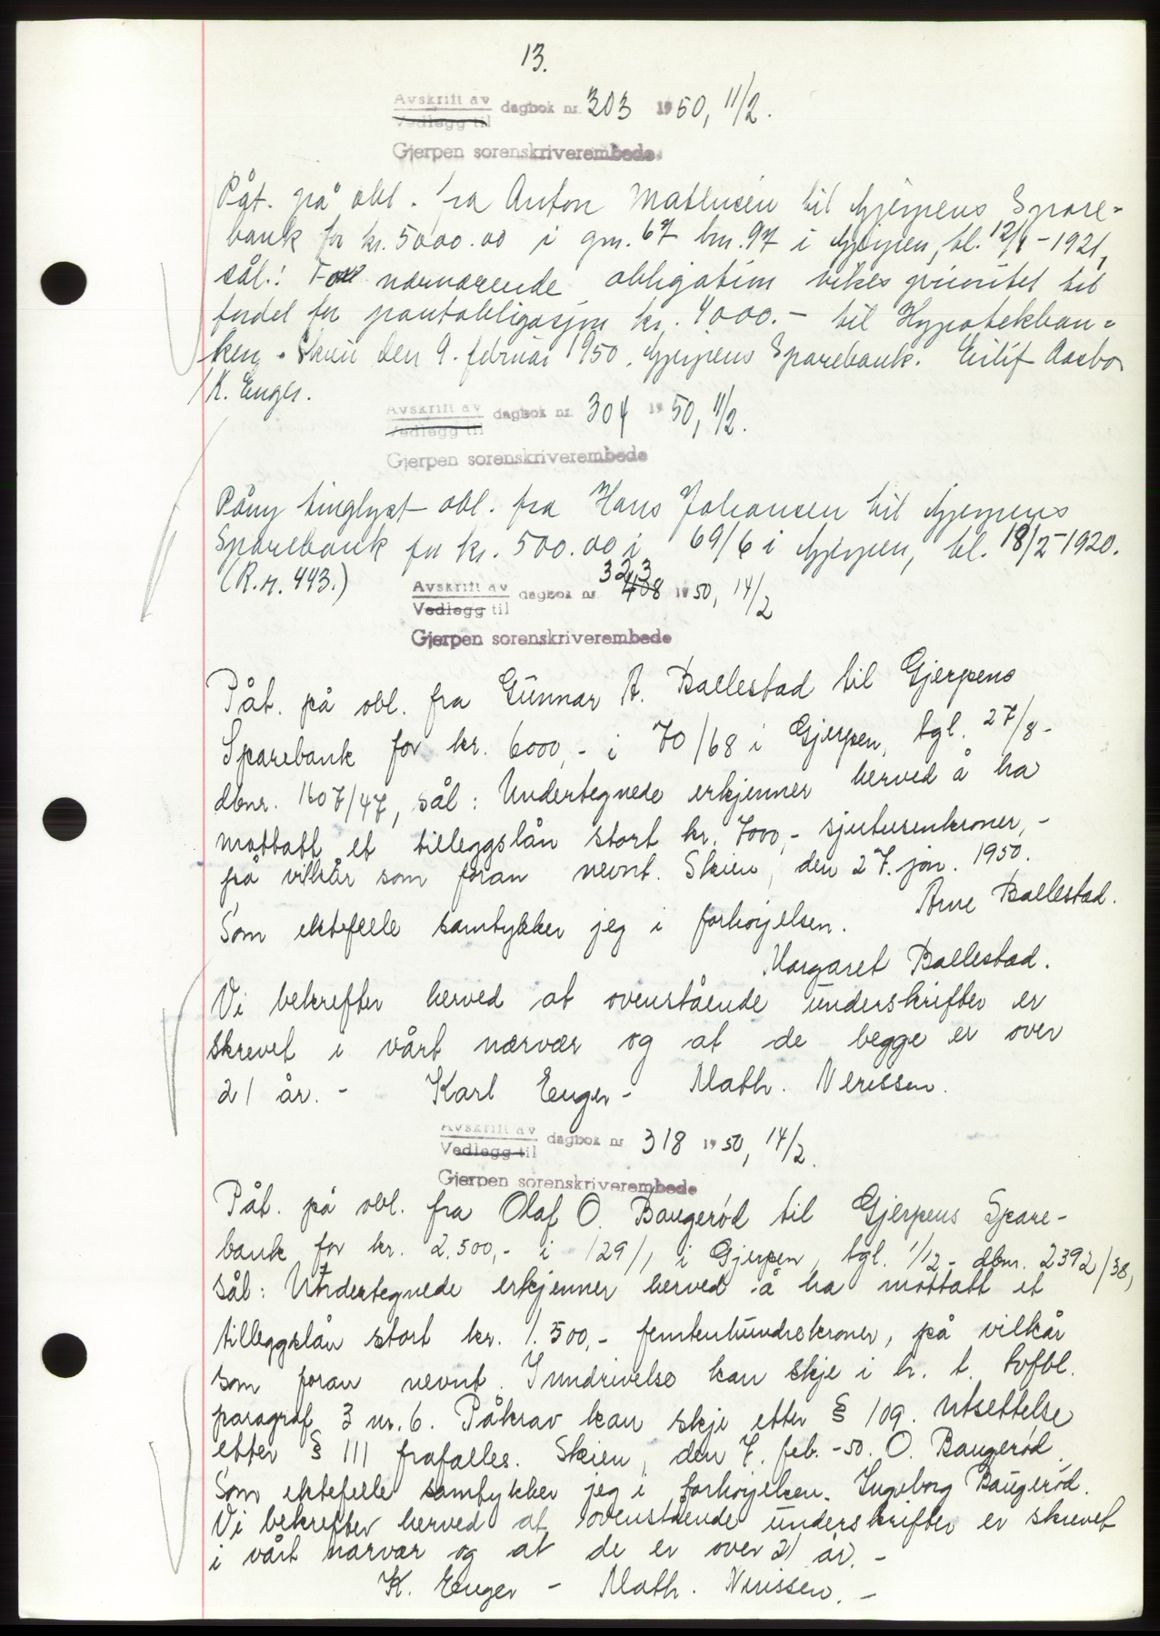 13.
Avskrift av
Vedlegg til dagbok nr. 303 1950, 11/2.
Gjerpen sorenskriverembede.
Påt. på obl. fra Anton Mathisen til Gjerpens Spare-
bank for kr. 5000.00 i gnr. 67 bnr. 97 i Gjerpen, tl. 12/1-1921,
sål.: For nærværende obligation vikes prioritet til
fordel for pantobligasjon kr. 4000.- til Hypotekban-
ken. Skien den 9. februar 1950. Gjerpens Sparebank. Eilif Aasbo
K. Enger.
Avskrift av
Vedlegg til dagbok nr. 304 1950, 11/2.
Gjerpen sorenskriverembede
Påny tinglyst obl. fra Hans Johansen til Gjerpens
Sparebank for kr. 500.00 i 69/6 i Gjerpen, tl. 18/2-1920.
(R.n. 443.)
Avskrift av
Vedlegg til dagbok nr. 408 323 1950, 14/2
Gjerpen sorenskriverembede
Påt. på obl. fra Gunnar A. Ballestad til Gjerpens
Sparebank for kr. 6000,- i 70/68 i Gjerpen, tgl. 27/8-
dbnr. 1607/47, sål: Undertegnede erkjenner herved å ha
mottatt et tilleggslån stort kr. 7000,- sjutusenkroner,-
på vilkår som foran nevnt. Skien, den 27. jan. 1950.
Arne Ballestad.
Som ektefelle samtykker jeg i forhøyelsen.
Margaret Ballestad.
Vi bekrefter herved at ovenstående underskrifter er
skrevet i vårt nærvær og at de begge er over
21 år. - Karl Enger - Math. Nerissen.
Avskrift av
Vedlegg til dagbok nr. 318 1950, 14/2.
Gjerpen sorenskriverembede
Påt. på obl. fra Olaf O. Baugerød til Gjerpens Spare-
bank for kr. 2.500,- i 129/1 i Gjerpen, tgl. 1/12- dbnr. 2392/38,
sål: Undertegnede erkjenner herved å ha mottatt et
tilleggslån stort kr. 1.500,- femtenhundrekroner, på vilkår
som foran nevnt. Inndrivelse kan skje i h. t. tvfbl.
paragraf 3 nr. 6. Påkrav kan skje etter § 109. Utsettelse
etter § 111 frafalles. Skien, den 7. feb. -50. O. Baugerød.
Som ektefelle samtykker jeg i forhøyelsen. Ingeborg Baugerød.
Vi bekrefter herved at ovenstående underskrifter er skrevet
i vårt nærvær og at de er over 21 år. -
K. Enger - Math. Nerissen. -